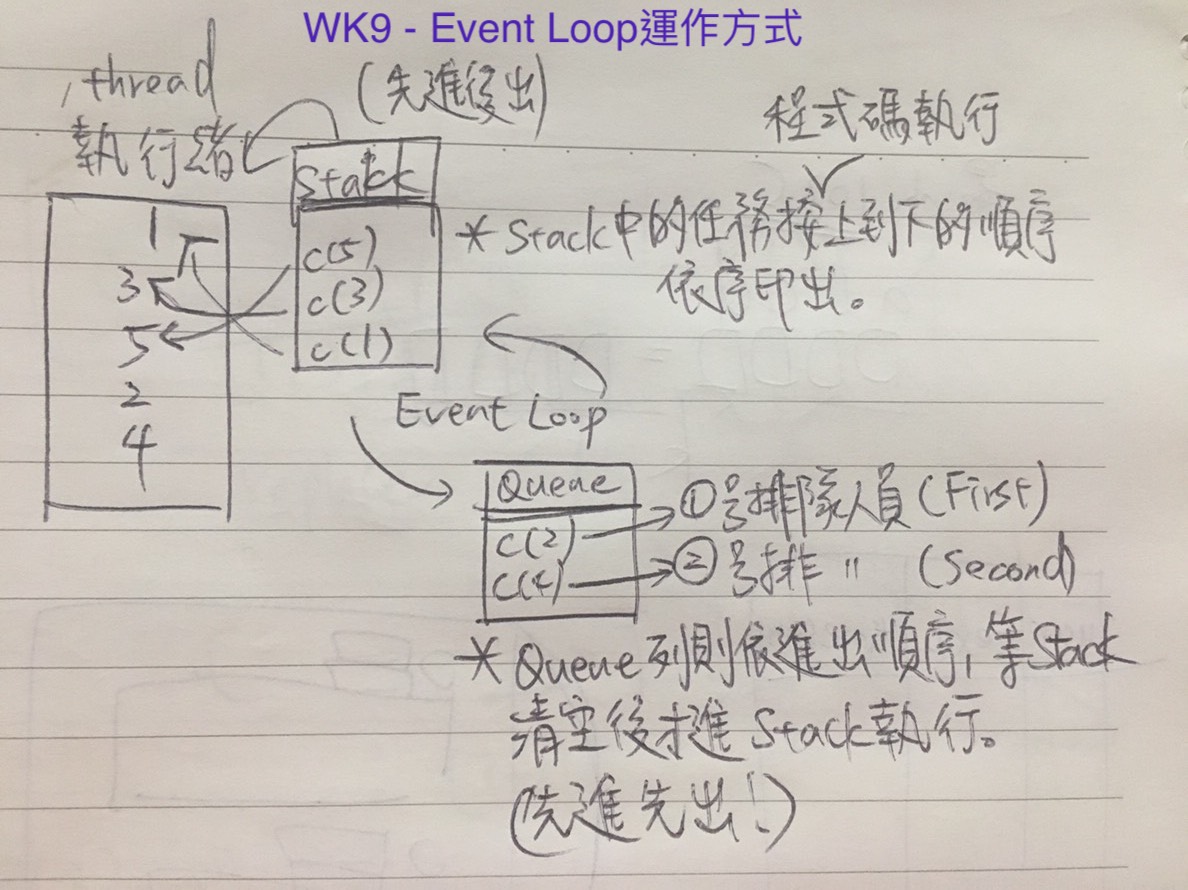 WK9 - Event Loop運作方式
thread
執行緒
(先進後出)
程式碼執行
Stack
c(5)
c(3)
c(1)
1
3
5
2
4
* Stack中的任務按上到下的順序
依序印出。
Event Loop
Queue
c(2)
c(4)
①号排隊人員(First)
②号排 〃 (Second)
* Queue 列則依進出順序,等Stack
清空後才進 Stack執行。
(先進先出!)